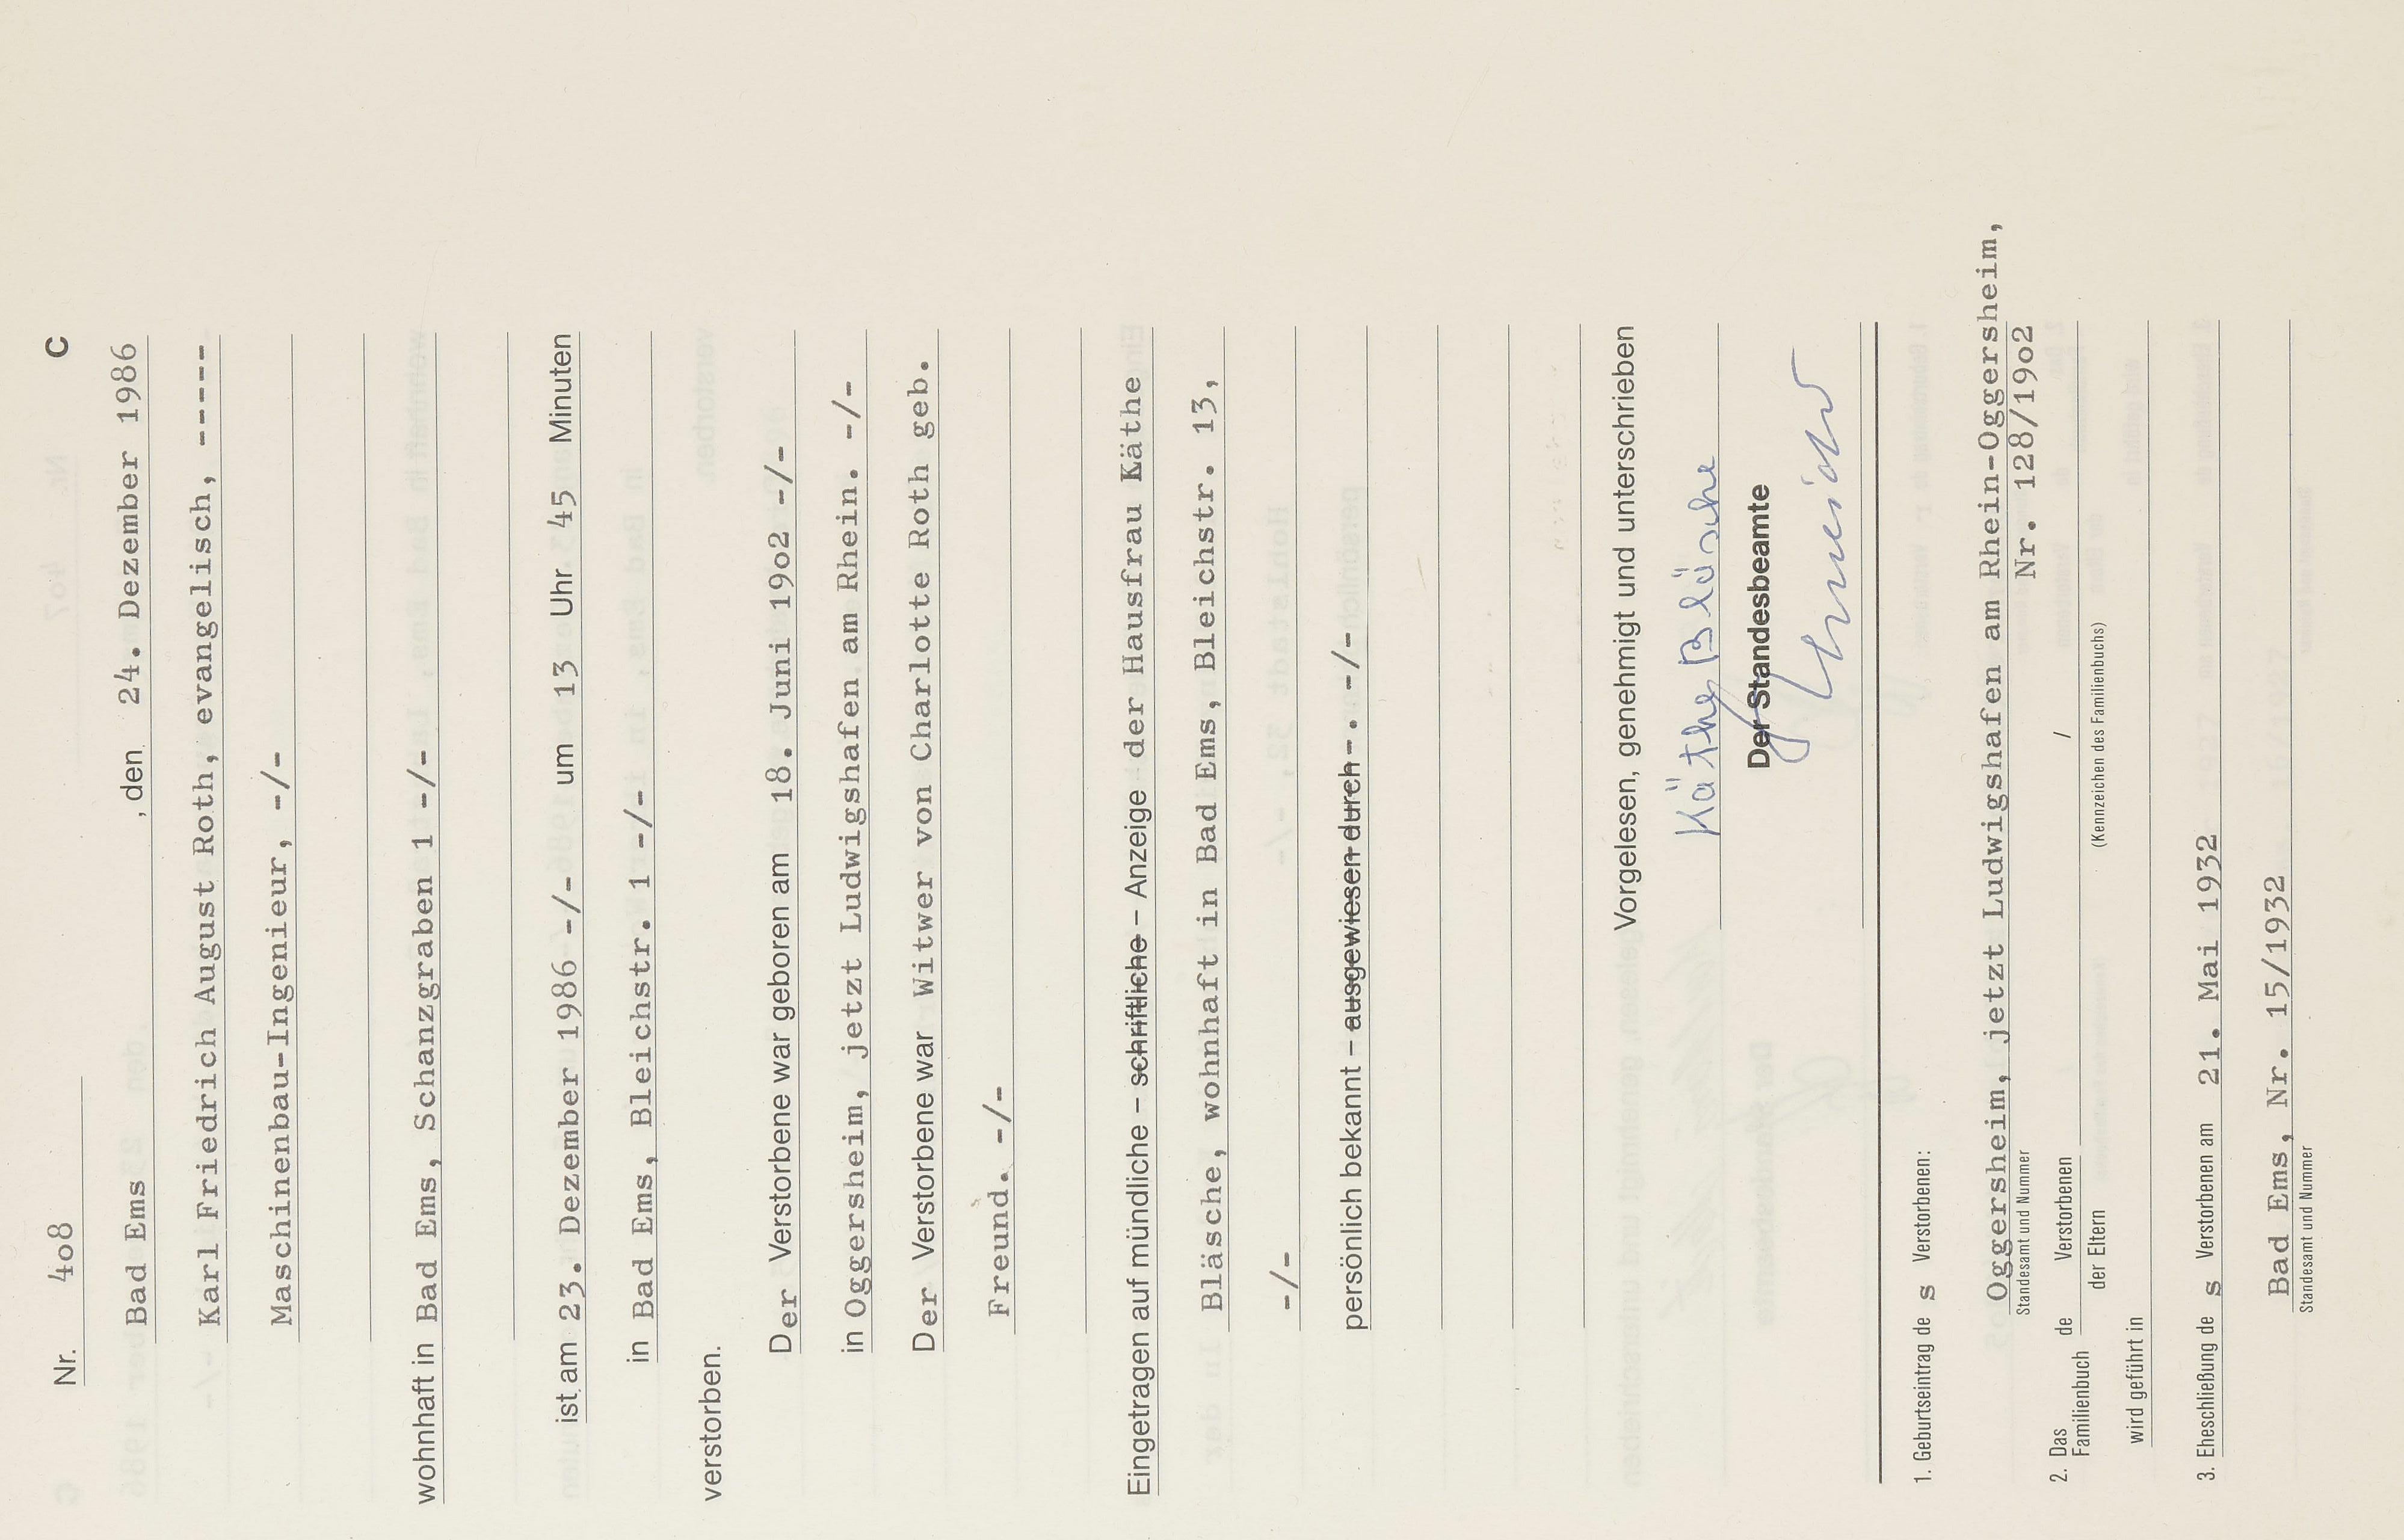 Nr. 4o8 C
Bad Ems , den 24. Dezember 1986
Karl Friedrich August Roth, evangelisch, -----
Maschinenbau-Ingenieur, -/-
wohnhaft in Bad Ems, Schanzgraben 1 -/-
ist am 23. Dezember 1986 -/- um 13 Uhr 45 Minuten
in Bad Ems, Bleichstr. 1 -/-
verstorben.
Der Verstorbene war geboren am 18. Juni 19o2 -/-
in Oggersheim, jetzt Ludwigshafen am Rhein. -/-
Der Verstorbene war Witwer von Charlotte Roth geb.
Freund. -/-
Eingetragen auf mündliche – schriftliche – Anzeige der Hausfrau Käthe
Bläsche, wohnhaft in Bad Ems, Bleichstr. 13,
-/-
persönlich bekannt – ausgewiesen durch -. -/-
Vorgelesen, genehmigt und unterschrieben
Käthe Bläsche
Der Standesbeamte
1. Geburtseintrag de s Verstorbenen:
Oggersheim, jetzt Ludwigshafen am Rhein-Oggersheim,
Nr. 128/19o2
Standesamt und Nummer
2. Das Familienbuch de Verstorbenen /
der Eltern (Kennzeichen des Familienbuchs)
wird geführt in
3. Eheschließung de s Verstorbenen am 21. Mai 1932
Bad Ems, Nr. 15/1932
Standesamt und Nummer